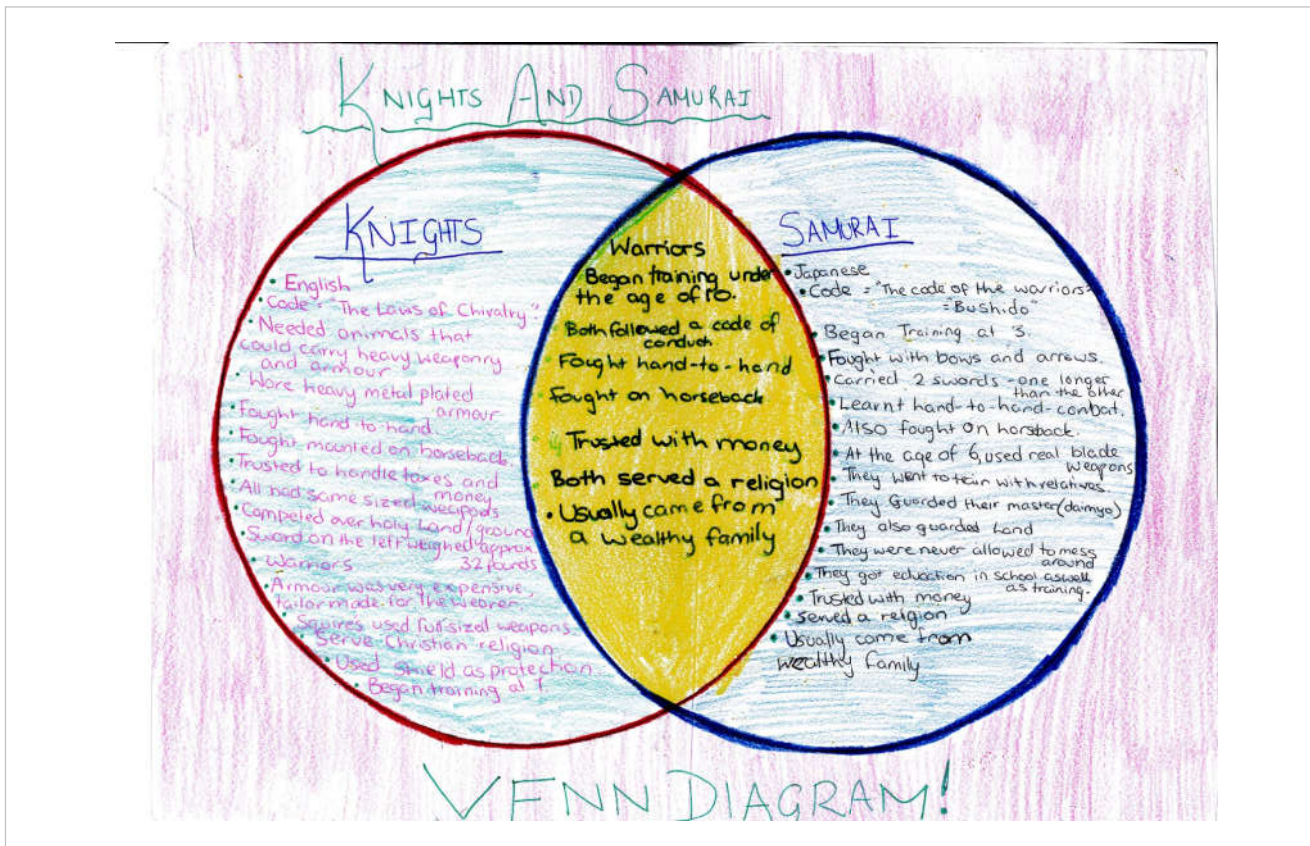 KNIGHTS AND SAMURAI
KNIGHTS
• English
• Code = "The Laws of Chivalry".
• Needed animals that
could carry heavy weaponry
and armour
• Wore heavy metal plated
armour
• Fought hand-to-hand.
• Fought mounted on horseback.
• Trusted to handle taxes and
money
• All had same sized weapons
• Competed over holy Land/ground
• Sword on the left weighed approx
32 pounds
• Warriors
• Armour was very expensive,
tailor made for the wearer.
• Squires used full sized weapons.
• Serve Christian religion
• Used shield as protection
• Began training at 7.
Warriors
Began training under
the age of 10.
• Both followed a code of
conduct
• Fought hand-to-hand
• Fought on horseback
Trusted with money
Both served a religion
• Usually came from
a wealthy family
SAMURAI
• Japanese
• Code = "The code of the warriors"
= "Bushido"
• Began Training at 3.
• Fought with bows and arrows.
• Carried 2 swords - one longer
than the other
• Learnt hand-to-hand-combat.
• Also fought on horsback.
• At the age of 6, used real blade
weapons
• They went to with relatives.
• They Guarded their master (daimyo)
• They also guarded Land
• They were never allowed to mess
around
• They got education in school aswell
as training.
• Trusted with money
• served a religion
• Usually came from
wealthy family
VENN DIAGRAM!